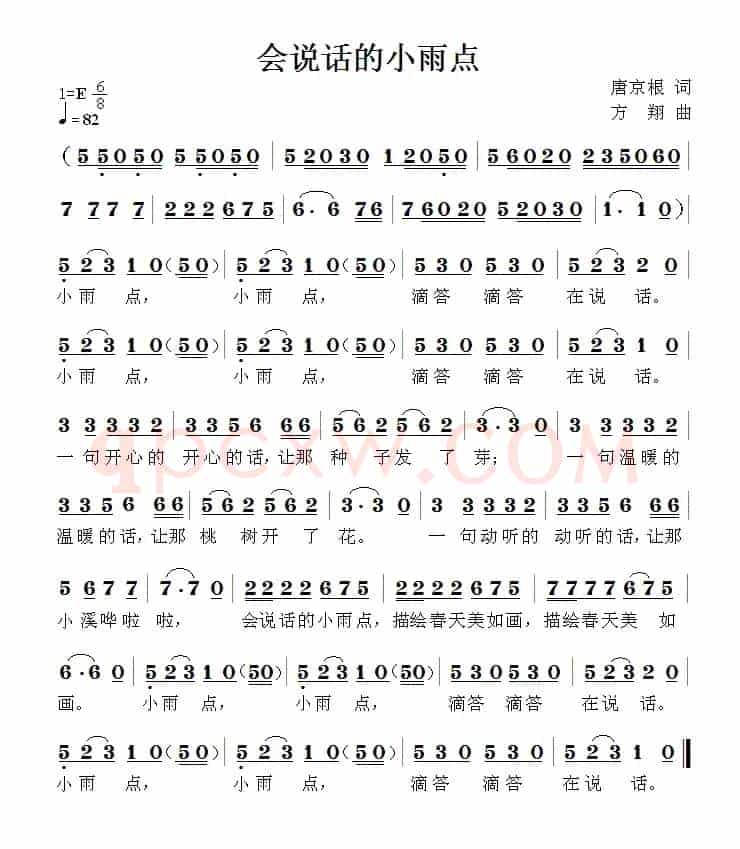 会说话的小雨点
1=E 6/8
♩=82
唐京根 词
方 翔 曲
(5 5050 5 5050 | 52030 1 2050 | 56020 235060 |
7 77 7 | 222675 | 6· 6 76 | 76020 52030 | 1· 1 0)
5 23 1 0(50) | 5 23 1 0(50) | 530 530 | 523 2 0 |
小雨 点， 小雨 点， 滴答 滴答 在说 话。
5 23 1 0(50) | 5 23 1 0(50) | 530 530 | 523 1 0 |
小雨 点， 小雨 点， 滴答 滴答 在说 话。
3 3332 | 3356 66 | 562 562 | 3·3 0 | 3 3332 |
一句开心的 开心的话，让那 种 子发 了 芽； 一 句温暖的
3356 66 | 562 562 | 3·3 0 | 3 3332 | 3356 66 |
温暖的话，让那 桃 树开 了 花。 一 句动听的 动听的话，让那
5 677 | 7·7 0 | 2222 675 | 2222675 | 7777675 |
小溪哗啦 啦， 会说话的小雨点，描绘春天美如画，描绘春天美 如
6·6 0 | 5 23 1 0(50) | 5 23 1 0(50) | 530530 | 523 2 0 |
画。 小雨 点， 小雨 点， 滴答 滴答 在说 话。
5 23 1 0(50) | 5 23 1 0(50) | 530 530 | 523 1 0 ‖
小雨 点， 小雨 点， 滴答 滴答 在说 话。
qpcxw.COM